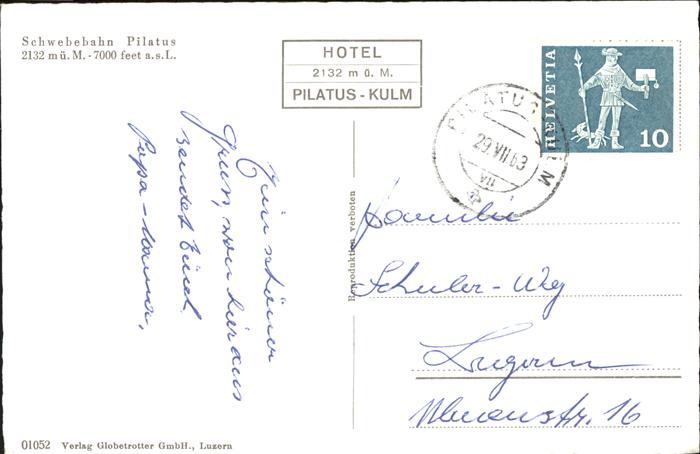 Schwebebahn Pilatus
2132 m ü. M. - 7000 feet a. s. L.
HOTEL
2132 m ü. M.
PILATUS - KULM
HELVETIA
10
PILATUS KULM
29.VII.63
VII
Ein schöner
Gruss, von hier aus
sendet Euch
Papa - Mama.
Reproduktion verboten
Familie
Schuler - Weg
Luzern
16
01052 Verlag Globetrotter GmbH., Luzern